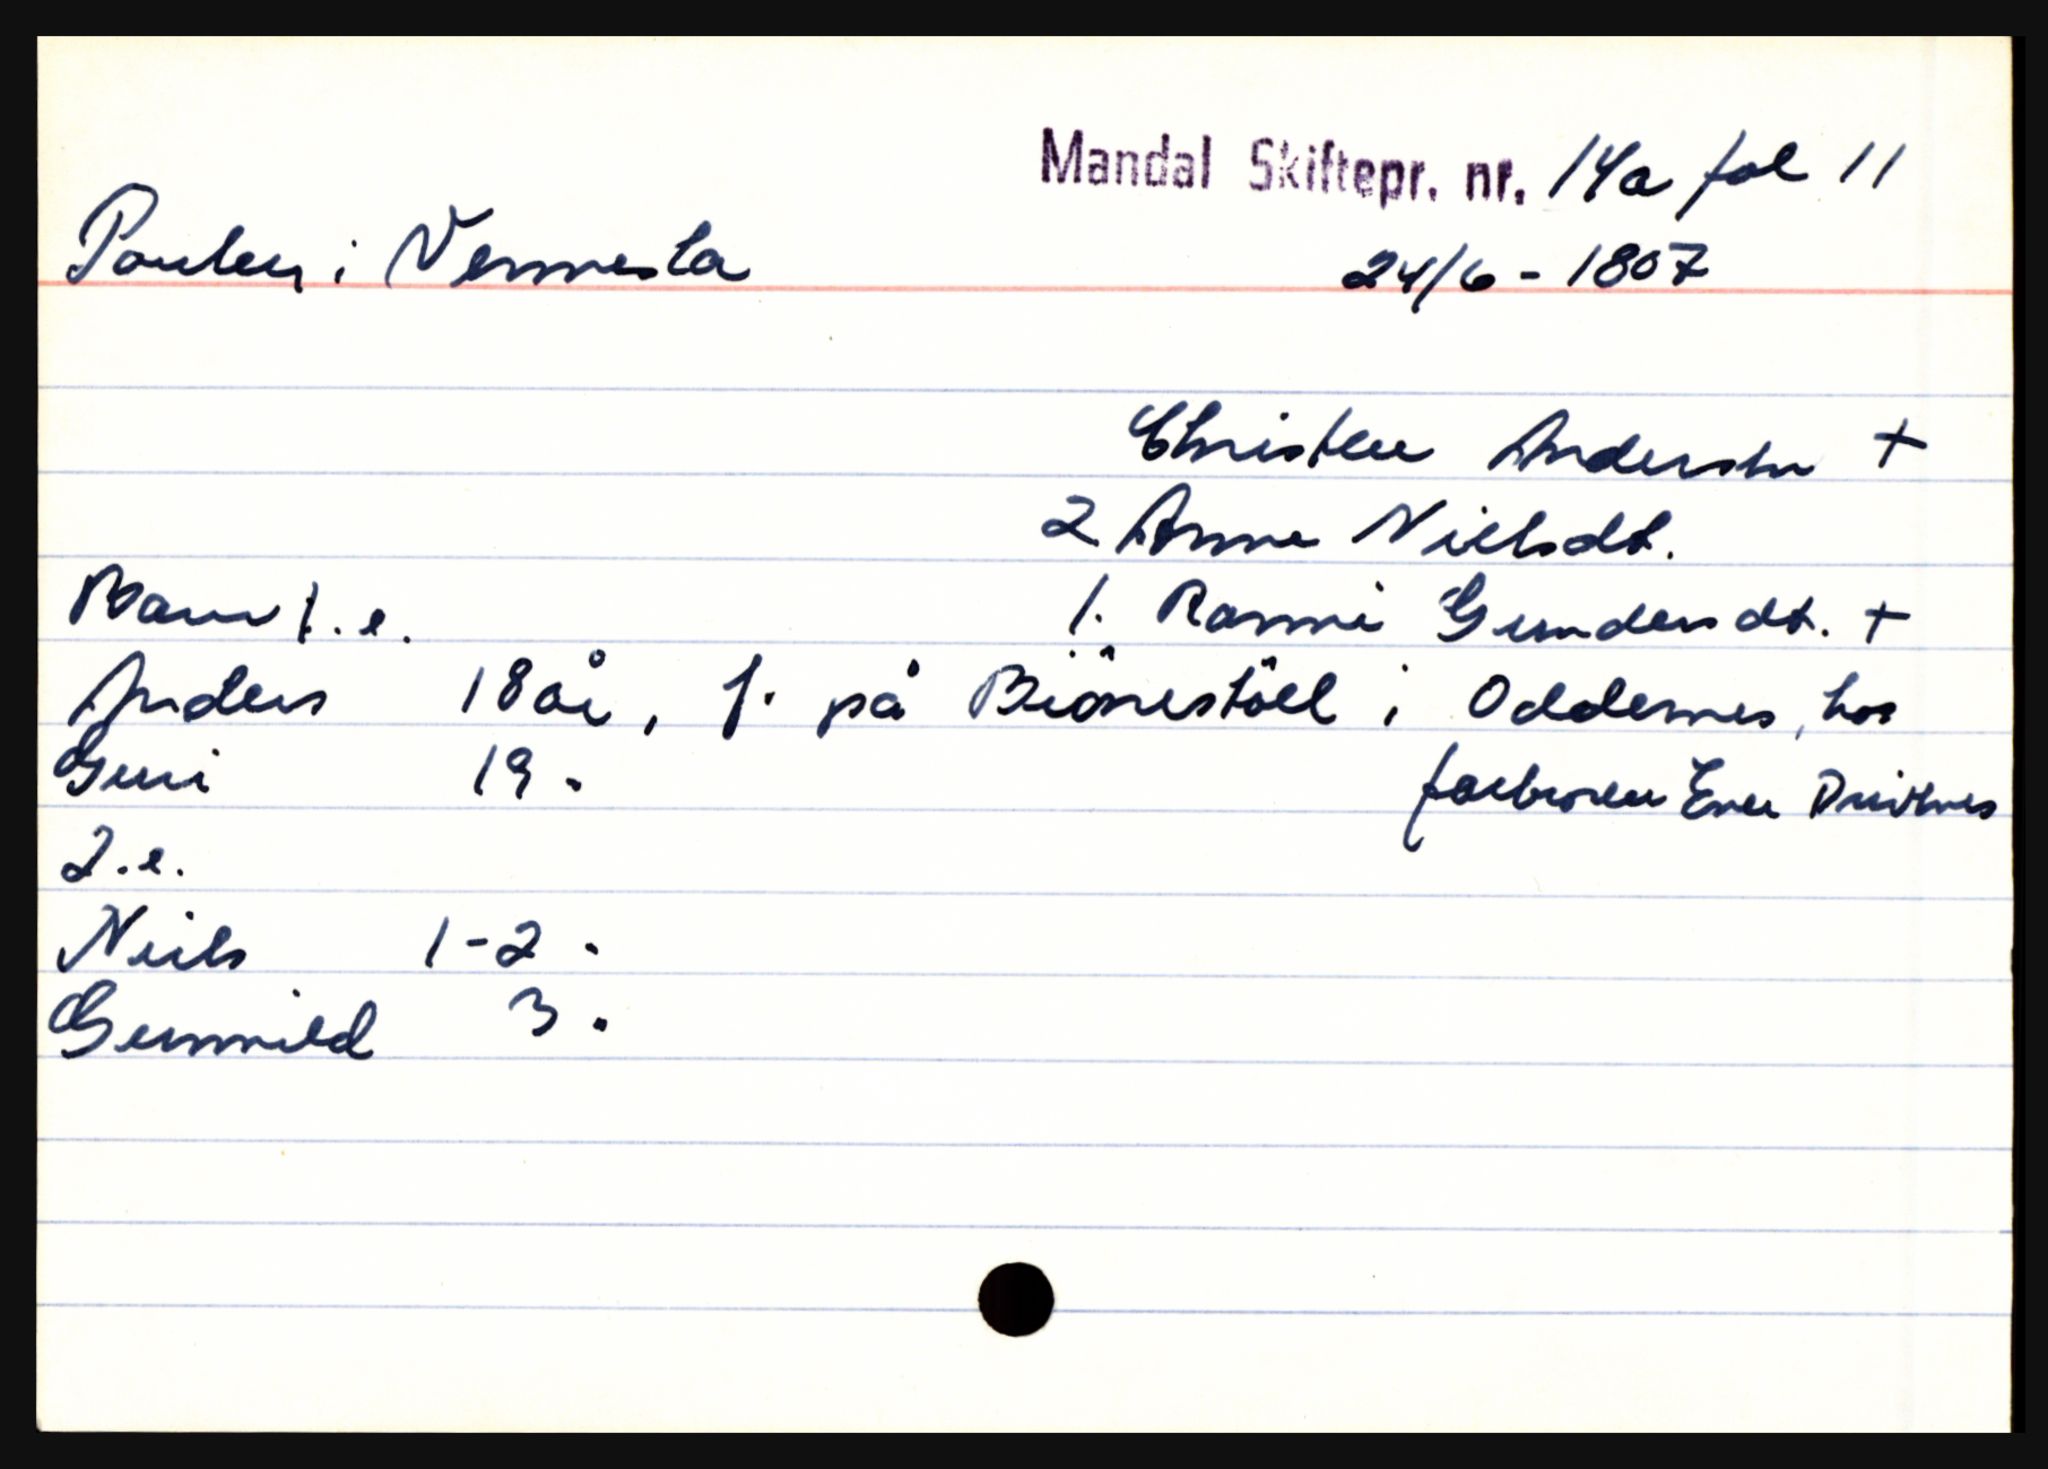 Mandal Skiftepr. nr. 14a fol 11
i Vennesla 24/6 - 1807
Christen Andersen +
2 Anne Nielsdt.
Barn 1. e. 1. Ranni Gundersdt. +
Anders 18 år, f. på Biönestöll i Oddernes, hos
Guri 19 . farbroren Even
2. e.
Neils 1-2 .
Gunnild 3 .